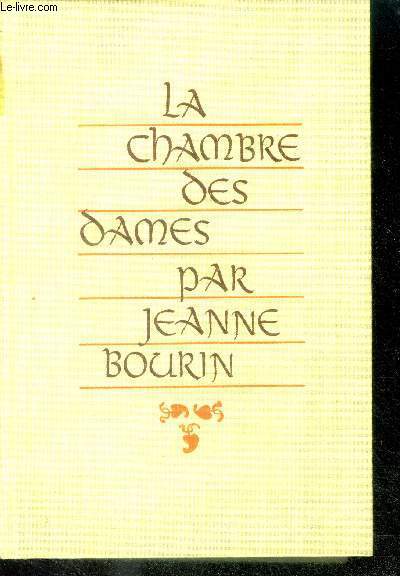 Le-livre.com
La
Chambre
des
dames
par
Jeanne
Bourin